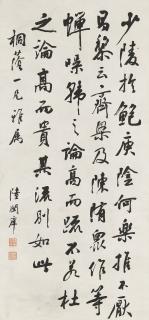 少陵於鮑庾陰何樂推不厭
昌黎云齊梁及陳隋眾作等
蟬噪韓之論高而疏不若杜
之論高而其流則如此
桐蔭一兄雅屬
陸潤庠